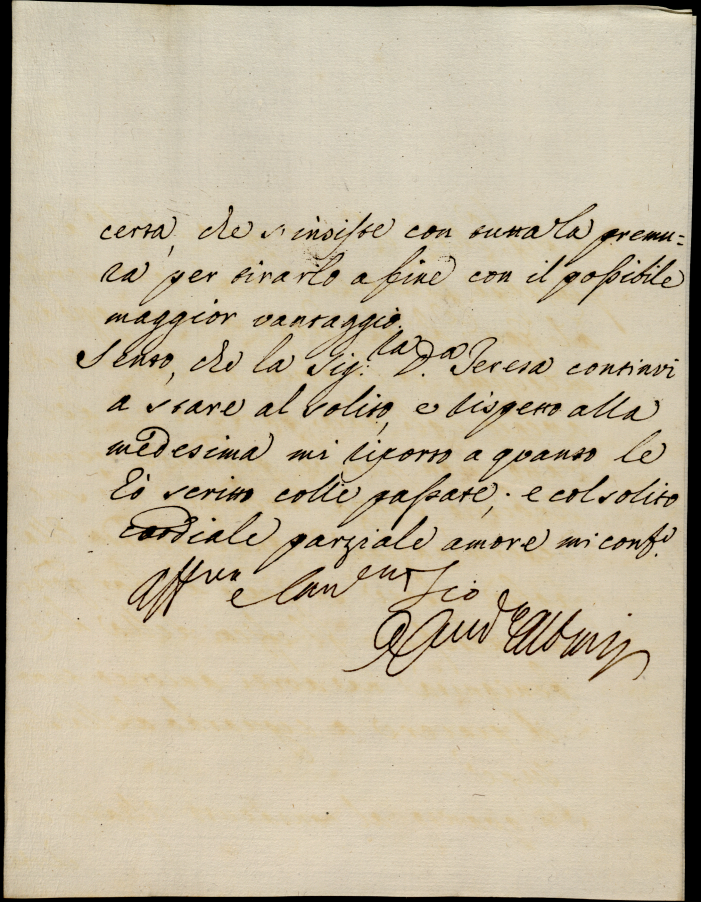 certa, che s'insiste con tutta la premu=
ra per tirarlo a fine con il possibile
maggior vantaggio.
Sento, che la Sig.ra D.a Teresa continui
a stare al solito, e rispetto alla
medesima mi riporto a quanto le
hò scritto colle passate; e col solito
cordiale parziale amore mi conf.o
Aff.mo e Zio